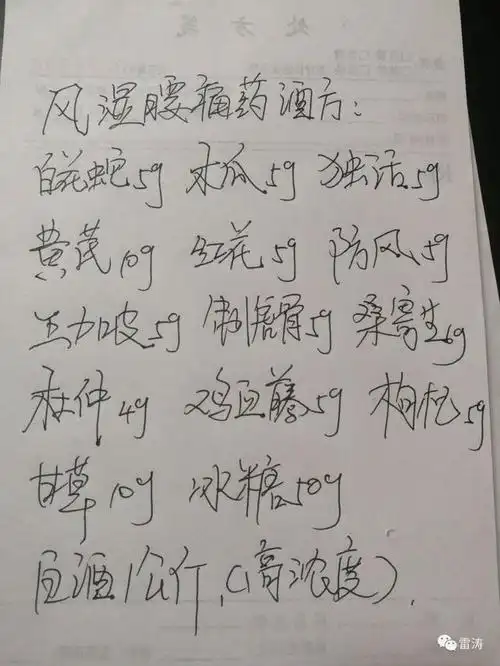 风湿腰痛药酒方：
白花蛇5g 木瓜5g 独活5g
黄芪10g 红花5g 防风5g
五加皮5g 5g 桑寄生6g
杜仲4g 鸡血藤5g 枸杞5g
甘草10g 冰糖50g
白酒1公斤，（高浓度）.
雷涛